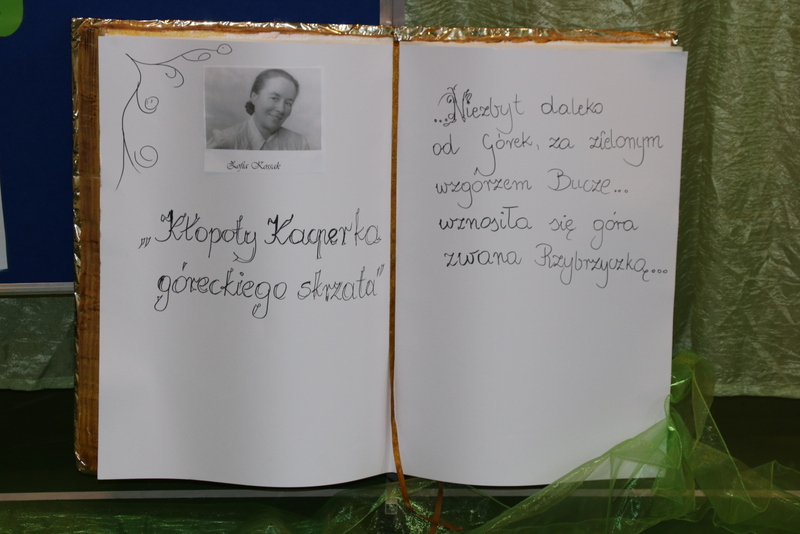 Zofia Kossak
„Kłopoty Kacperka
góreckiego skrzata"
...Niezbyt daleko
od Górek, za zielonym
wzgórzem Bucze...
wznosiła się góra
zwana Rzybrzyczką....